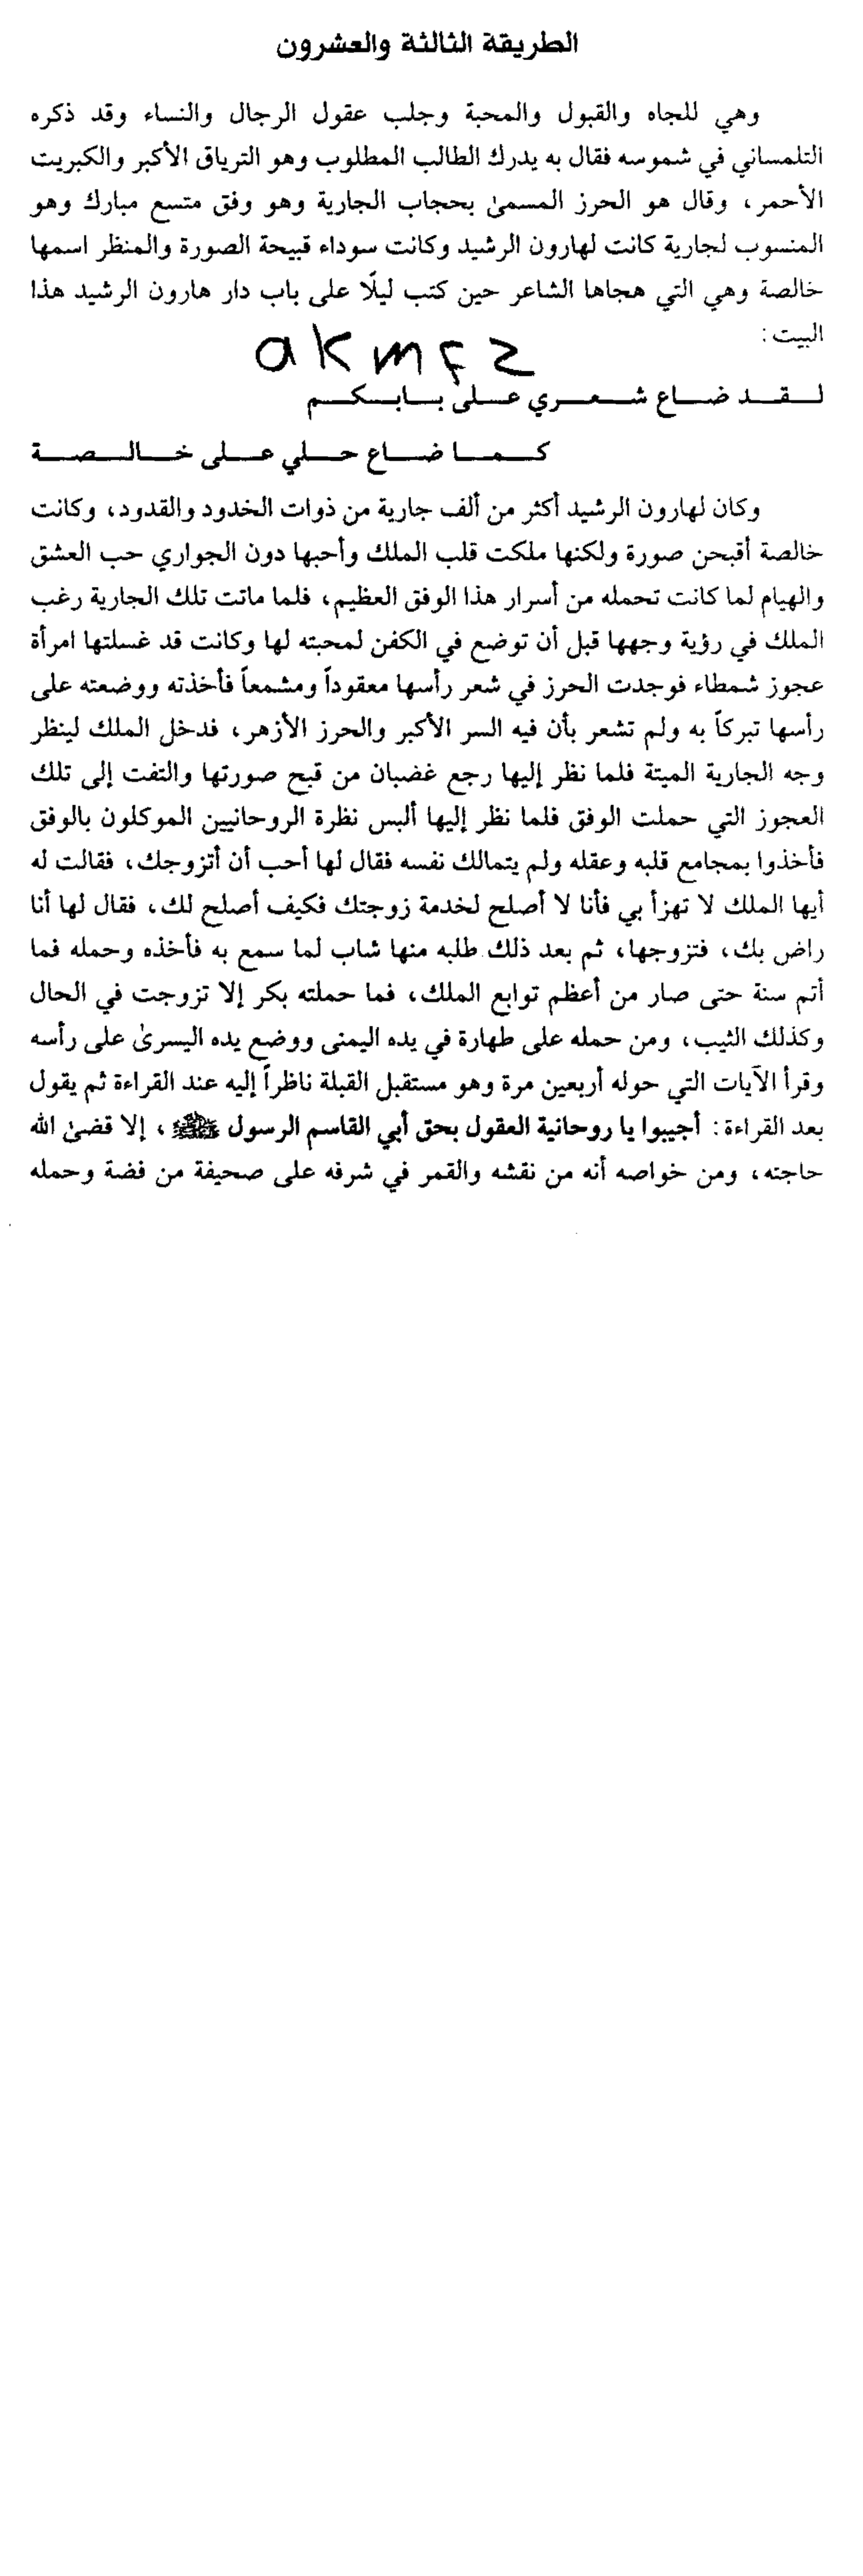 الطريقة الثالثة والعشرون
وهي للجاه والقبول والمحبة وجلب عقول الرجال والنساء وقد ذكره
التلمساني في شموسه فقال به يدرك الطالب المطلوب وهو الترياق الأكبر والكبريت
الأحمر، وقال هو الحرز المسمىٰ بحجاب الجارية وهو وفق متسع مبارك وهو
المنسوب لجارية كانت لهارون الرشيد وكانت سوداء قبيحة الصورة والمنظر اسمها
خالصة وهي التي هجاها الشاعر حين كتب ليلًا على باب دار هارون الرشيد هذا
البيت:
a k m f z
لـقـد ضـاع شـعـري عـلى بـابـكـم
كـمـا ضـاع حـلي عـلى خـالـصـة
وكان لهارون الرشيد أكثر من ألف جارية من ذوات الخدود والقدود، وكانت
خالصة أقبحن صورة ولكنها ملكت قلب الملك وأحبها دون الجواري حب العشق
والهيام لما كانت تحمله من أسرار هذا الوفق العظيم، فلما ماتت تلك الجارية رغب
الملك في رؤية وجهها قبل أن توضع في الكفن لمحبته لها وكانت قد غسلتها امرأة
عجوز شمطاء فوجدت الحرز في شعر رأسها معقوداً ومشمعاً فأخذته ووضعته على
رأسها تبركاً به ولم تشعر بأن فيه السر الأكبر والحرز الأزهر، فدخل الملك لينظر
وجه الجارية الميتة فلما نظر إليها رجع غضبان من قبح صورتها والتفت إلى تلك
العجوز التي حملت الوفق فلما نظر إليها ألبس نظرة الروحانيين الموكلون بالوفق
فأخذوا بمجامع قلبه وعقله ولم يتمالك نفسه فقال لها أحب أن أتزوجك، فقالت له
أيها الملك لا تهزأ بي فأنا لا أصلح لخدمة زوجتك فكيف أصلح لك، فقال لها أنا
راض بك، فتزوجها، ثم بعد ذلك طلبه منها شاب لما سمع به فأخذه وحمله فما
أتم سنة حتى صار من أعظم توابع الملك، فما حملته بكر إلا تزوجت في الحال
وكذلك الثيب، ومن حمله على طهارة في يده اليمنى ووضع يده اليسرىٰ على رأسه
وقرأ الآيات التي حوله أربعين مرة وهو مستقبل القبلة ناظراً إليه عند القراءة ثم يقول
بعد القراءة: أجيبوا يا روحانية العقول بحق أبي القاسم الرسول ﷺ، إلا قضىٰ الله
حاجته، ومن خواصه أنه من نقشه والقمر في شرفه على صحيفة من فضة وحمله